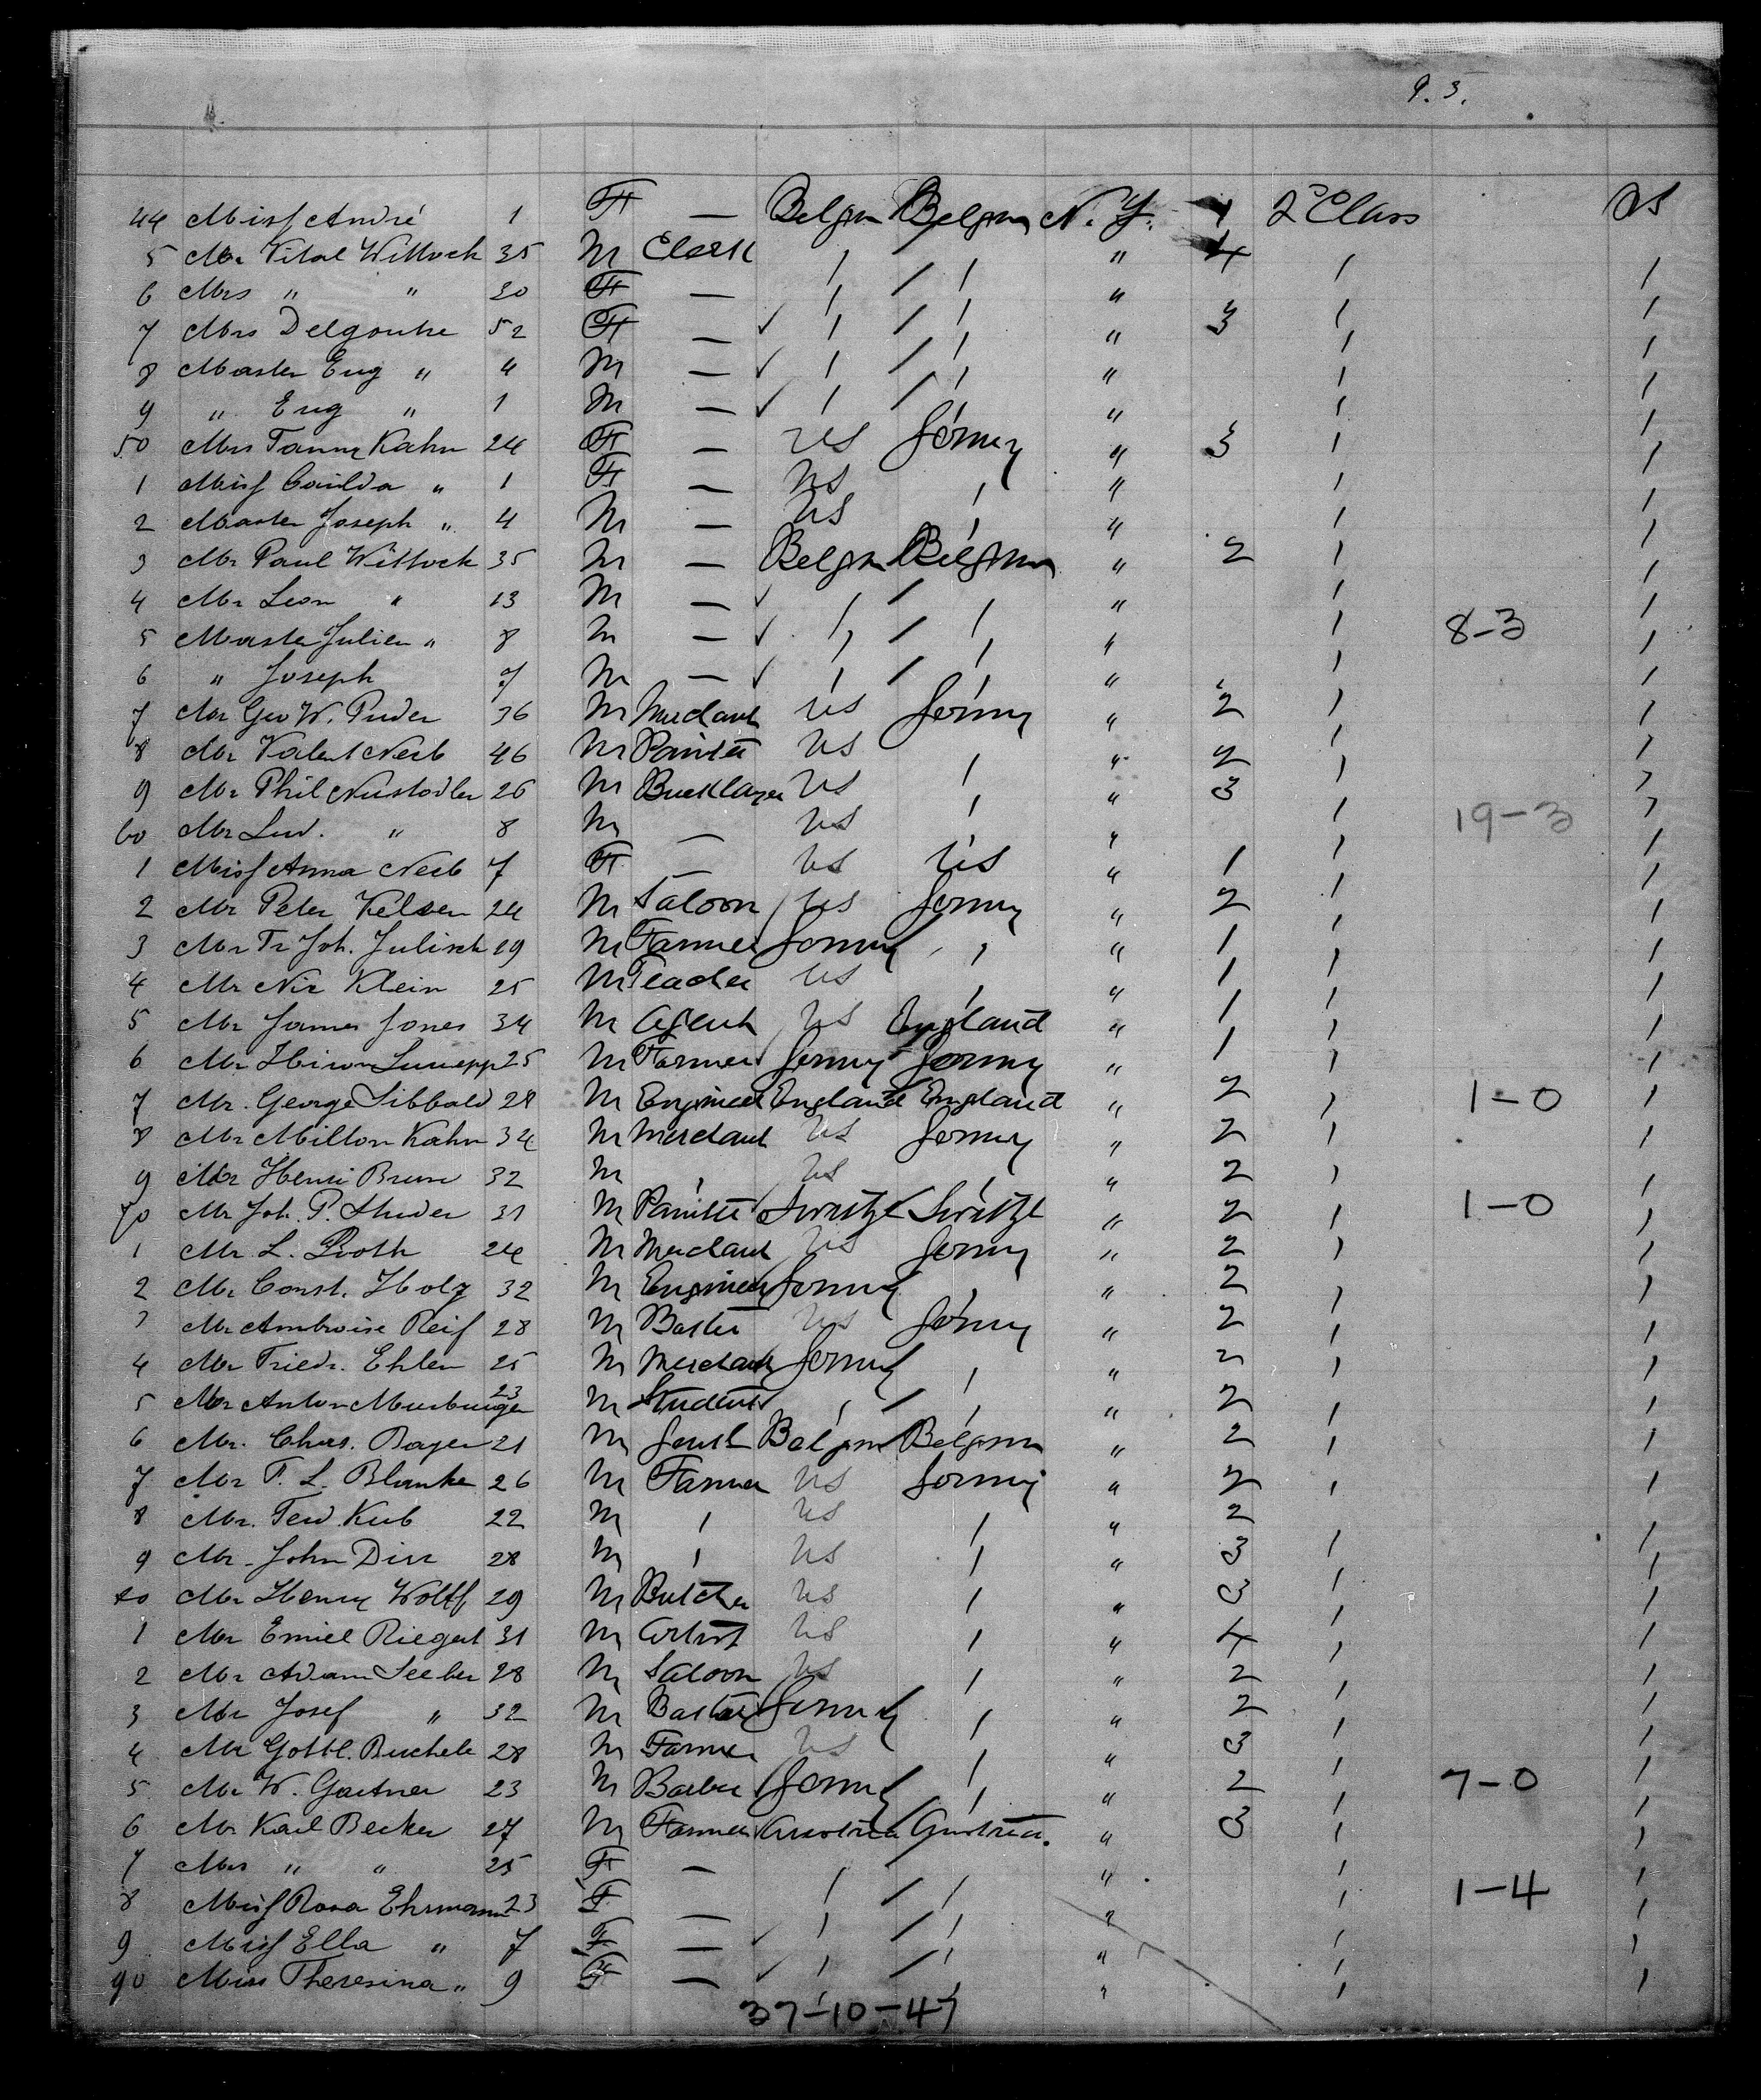 9. 3.
44 Miss André 1 F — Belgm Belgm N. Y. 1 2d Class
5 Mr Vital Wittock 35 M Clerk / / / " 4 /
6 Mrs " " 30 F — / / / " /
7 Mrs Delgouhe 52 F — ✓ / / / " 3 /
8 Master Eug " 4 M — ✓ / / / " /
9 " Eug " 1 M — ✓ / / / " /
50 Mrs Fanny Kahn 24 F — US Germy " 3 /
1 Miss " 1 F — US / " /
2 Master Joseph " 4 M — US / " /
3 Mr Paul Wittock 35 M — Belgm Belgm " 2 /
4 Mr Leon " 13 M — ✓ / / / " /
5 Master Julien " 8 M — ✓ / / / " / 8-3
6 " Joseph 7 M — ✓ / / / " /
7 Mr Geo W. Puder 36 M Merchant US Germy " 2 /
8 Mr Valent Neib 46 M Painter US / " 2 /
9 Mr Phil Neustadler 26 M Bricklayer US / " 3 /
60 Mr Lud. " 8 M — US / " / 19-3
1 Miss Anna Neib 7 F — US US " 1 /
2 Mr Peter Velsen 24 M Saloon / US Germy " 2 /
3 Mr Fr Joh. Julisch 29 M Farmer Germy / " 1 /
4 Mr Nic Klein 25 M Teacher US / " 1 /
5 Mr James Jones 34 M Agent US England " 1 /
6 Mr 25 M Farmer Germy Germy " 1 /
7 Mr. George Sibbald 28 M Engineer England England " 2 / 1-0
8 Mr Milton Kahn 34 M Merchant US Germy " 2 /
9 Mr Henri Brun 32 M / US / " 2 /
70 Mr Joh. P. Studer 31 M Painter Switzl Switzl " 2 / 1-0
1 Mr L. Rooth 24 M Merchant US Germy " 2 /
2 Mr Const. Holz 32 M Engineer Germy / " 2 /
3 Mr Ambroise Reif 28 M US Germy " 2 /
4 Mr Friedr. Ehlen 25 M Merchant Germy / " 2 /
5 Mr Anton 23 M Student / / / " 2 /
6 Mr. Chas. Bayer 21 M Gentl Belgm Belgm " 2 /
7 Mr F. L. Blanke 26 M Farmer US Germy " 2 /
8 Mr. Ferd. Kub 22 M / US / " 2
9 Mr. John Dirr 28 M / US / " 3 /
80 Mr Henry Wolff 29 M Butcher US / " 3 /
1 Mr Emiel Riegert 31 M Artist US / " 4 /
2 Mr Adam Seeber 28 M Saloon US / " 2 /
3 Mr Josef " 32 M Germy / " 2 /
4 Mr Gottl. Buchele 28 M Farmer US / " 3 /
5 Mr W. Gartner 23 M Barber Germy / / " 2 / 7-0
6 Mr Karl Becker 27 M Farmer Austria Austria. " 3 /
7 Mrs " " 25 F — / / / " /
8 Miss Rosa Ehrmann 23 F — / / / " / 1-4
9 Miss Ella " 7 F — ✓ / / / " /
90 Miss Theresina " 9 F — ✓ / / / " /
37-10-47